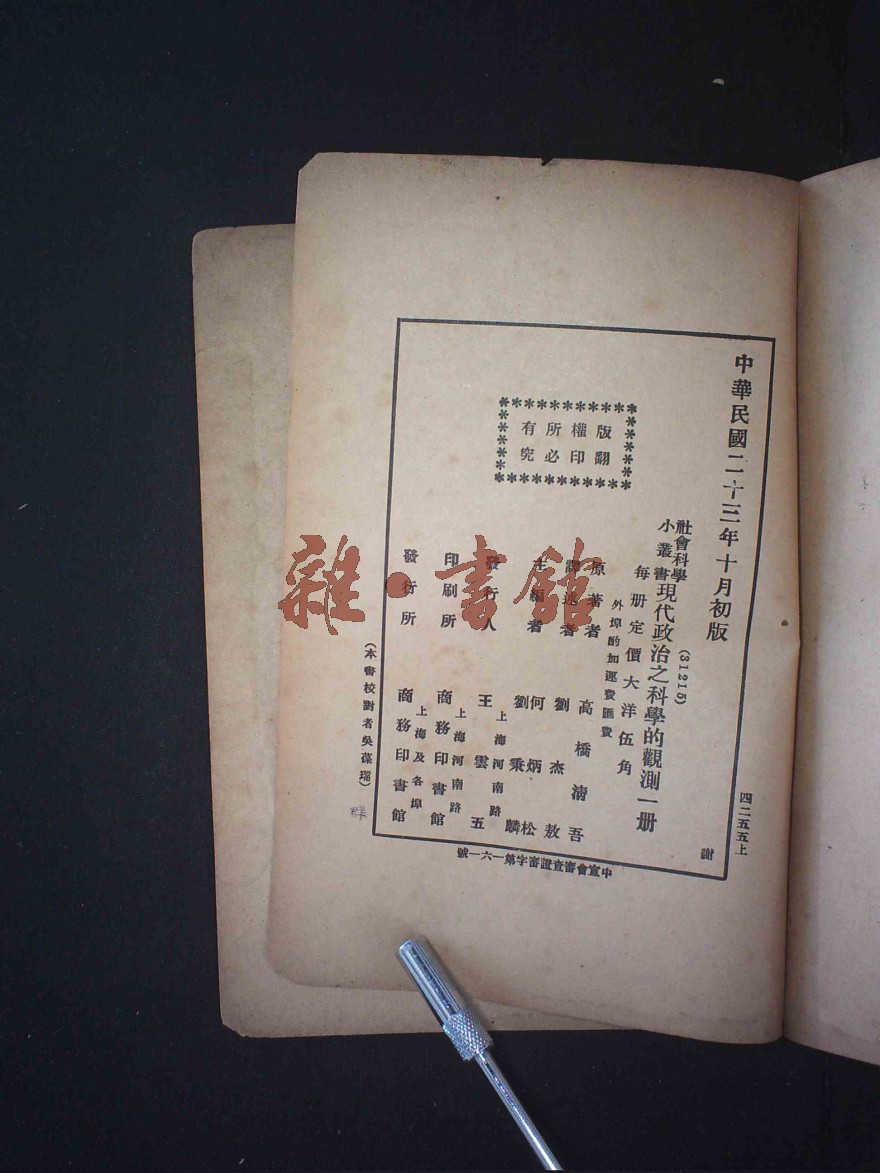 中華民國二十三年十月初版
四二五五上
社會科學
小叢書
現代政治之科學的觀測一册
(31215)
每册定價大洋伍角
外埠酌加運費匯費
版權所有
翻印必究
原著者 高橋淸吾
譯述者 劉杰敖
主編者 何炳松
劉秉麟
發行人 王雲五
上海河南路
印刷所 商務印書館
上海河南路
發行所 商務印書館
上海及各埠
(本書校對者吳葆瑞)
謝
中宣會審查證審字第一六一號
雜·書館